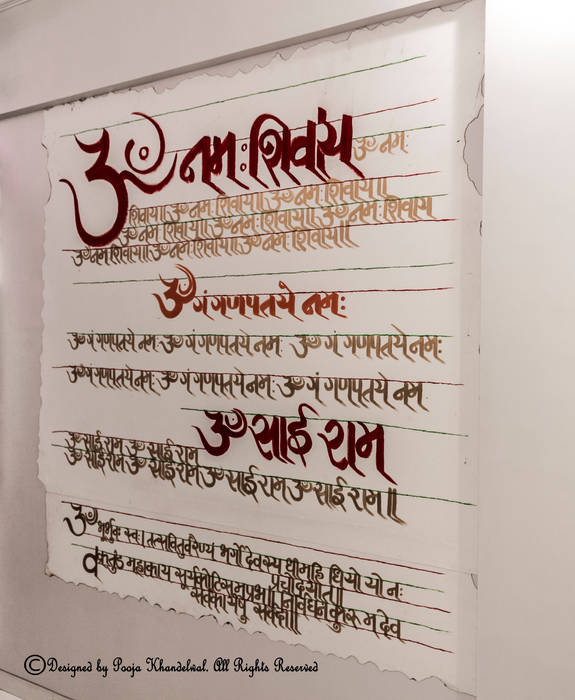 ॐ नमः शिवाय ॐ नमः
शिवाय॥ ॐ नमः शिवाय॥ ॐ नमः शिवाय॥
ॐ नमः शिवाय॥ ॐ नमः शिवाय॥ ॐ नमः शिवाय
ॐ नमः शिवाय॥ ॐ नमः शिवाय॥ ॐ नमः शिवाय॥
ॐ गं गणपतये नमः
ॐ गं गणपतये नमः ॐ गं गणपतये नमः ॐ गं गणपतये नमः
ॐ गं गणपतये नमः ॐ गं गणपतये नमः ॐ गं गणपतये नम
ॐ साई राम
ॐ साई राम ॐ साई राम
ॐ साई राम ॐ साई राम ॐ साई राम ॐ साई राम॥
ॐ भूर्भुवः स्वः। तत्सवितुवरेण्य भर्गो देवस्य धीमहि धियो यो नः
प्रचोदयात॥
वक्रतुंड महाकाय सूर्यकोटि समप्रभ॥ निर्विघ्न कुरू म देव
सर्वकार्येषु सर्वदा॥
©Designed by Pooja Khandelwal. All Rights Reserved